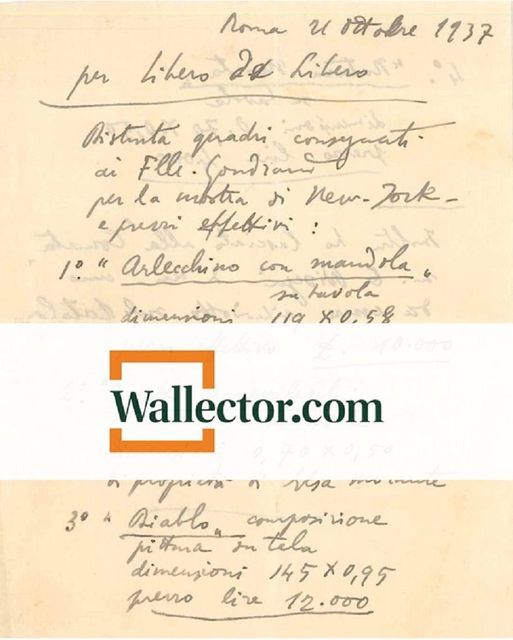 Roma 21 ottobre 1937
per Libero De Libero
Distinta quadri consegnati
ai F.lle. Gondrand
per la mostra di New-York-
e prezzi effettivi :
1º " Arlecchino con mandola "
su tavola
dimensioni 119 X 0,58
10.000
Wallector.com
0,70 X 0,50
di proprietà di
3º " Diablo " composizione
pittura su tela
dimensioni 145 X 0,95
prezzo lire 12.000